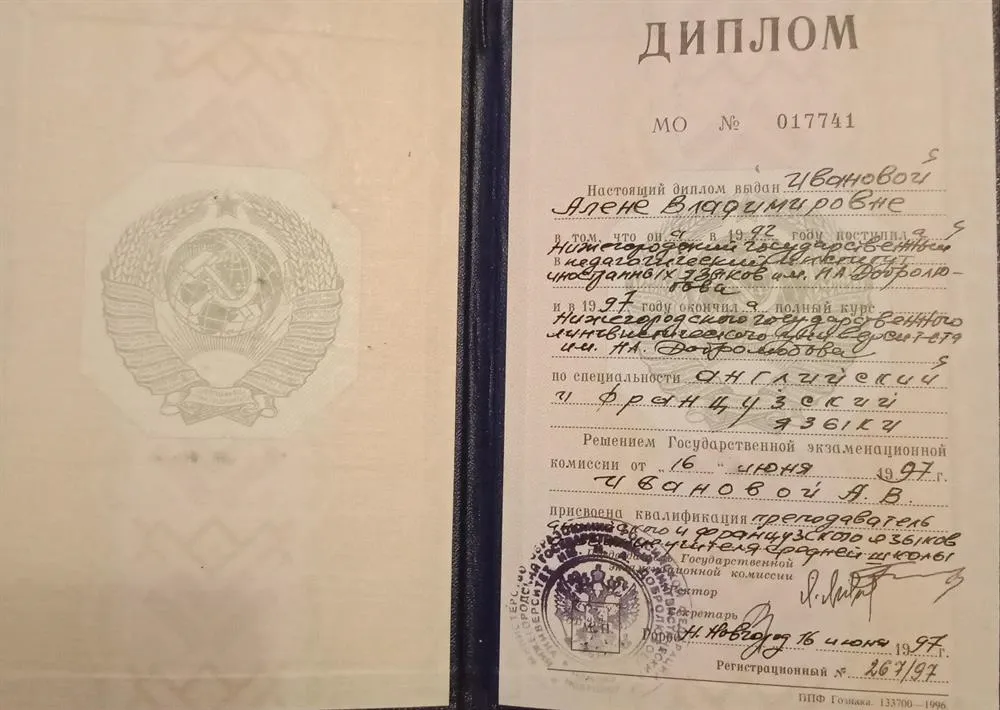 ДИПЛОМ
МО № 017741
Настоящий диплом выдан Ивановой
Алене Владимировне
в том, что она в 1992 году поступила
в Нижегородский государственный
педагогический институт
иностранных языков им. НА Добролю-
бова
и в 1997 году окончила полный курс
Нижегородского государственного
лингвистического университета
им. НА. Добролюбова
по специальности английский
и французский
языки
Решением Государственной экзаменационной
комиссии от „16“ июня 1997 г.
Ивановой А.В.
присвоена квалификация преподаватель
английского и французского языков
учителя средней школы
Председатель Государственной
экзаменационной комиссии
Ректор
Секретарь
Город Н. Новгород 16 июня 1997 г.
Регистрационный № 267/97
ППФ Гознака. 133700—1996.